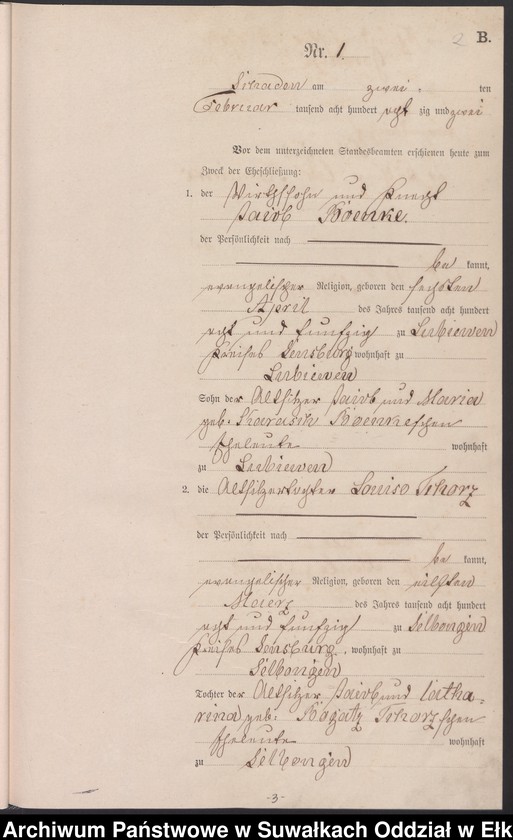 2 B.
Nr. 1.
Schaden am zwei ten
Februar tausend acht hundert acht zig und zwei
Vor dem unterzeichneten Standesbeamten erschienen heute zum
Zweck der Eheschließung:
1. der Wirthssohn und Knecht
Jacob Boenke.
der Persönlichkeit nach
be kannt,
evangelischer Religion, geboren den sechsten
April des Jahres tausend acht hundert
acht und funfzig zu Lubiewen
Kreises Sensburg wohnhaft zu
Lubiewen
Sohn der Altsitzer Jacob und Maria
geb. Skarasik Boenkeschen
Eheleute wohnhaft
zu Lubiewen
2. die Altsitzertochter Louise Tcharz
der Persönlichkeit nach
be kannt,
evangelischer Religion, geboren den eilften
Maerz des Jahres tausend acht hundert
acht und funfzig zu Selbongen
Kreises Sensburg, wohnhaft zu
Selbongen
Tochter der Altsitzer Jacob und Catha-
rina geb. Bagatz Tcharzschen
Eheleute wohnhaft
zu Selbongen
-3-
Archiwum Państwowe w Suwałkach Oddział w Ełk